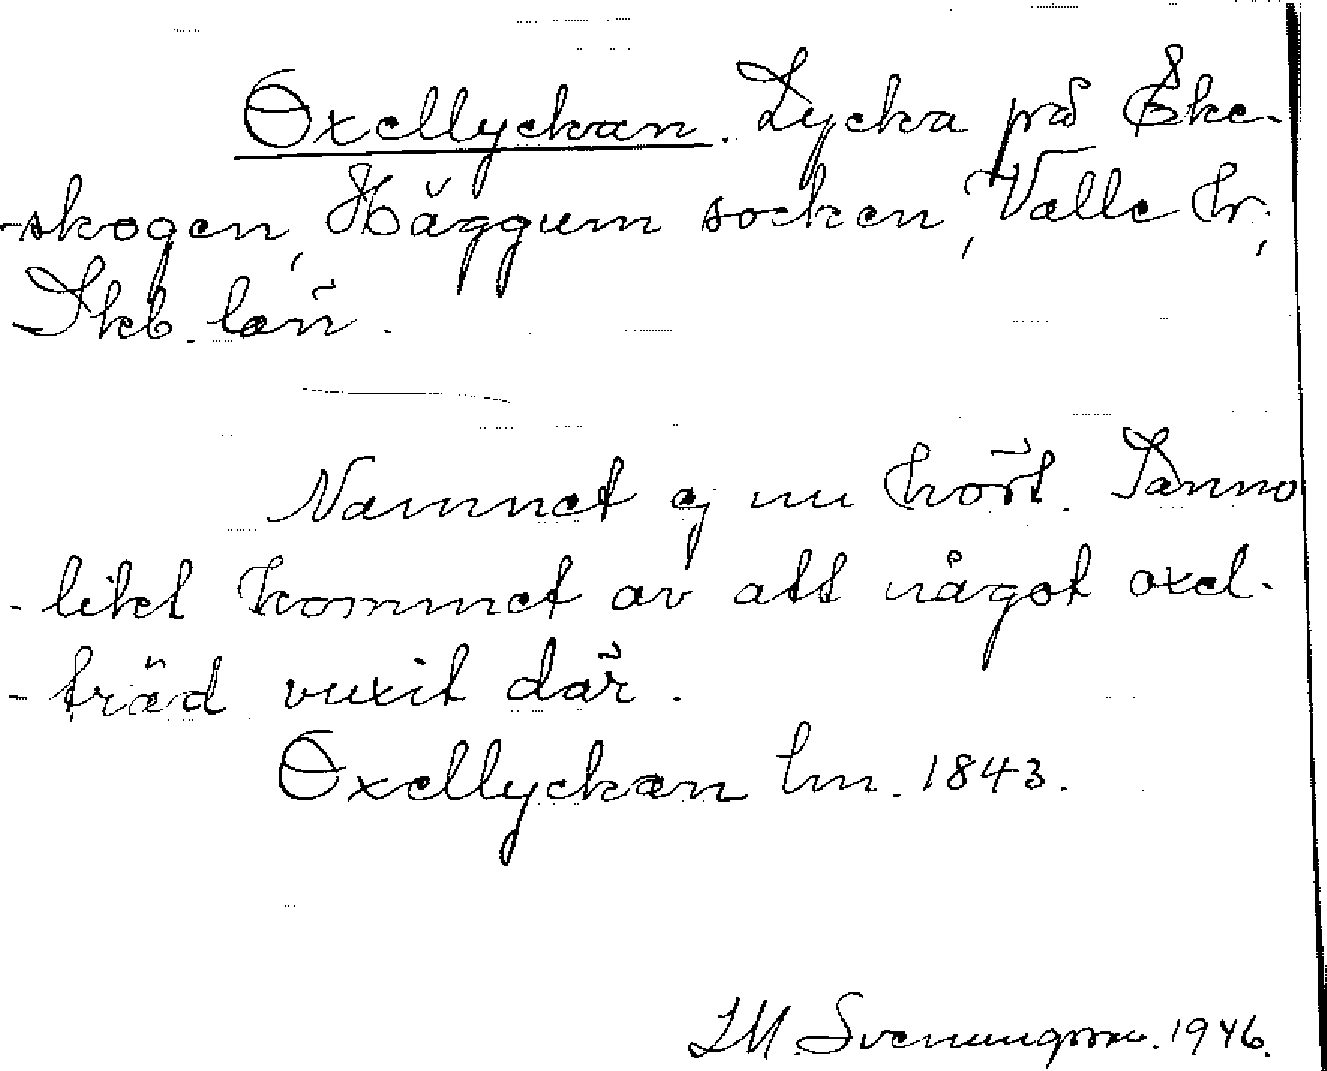 Oxellyckan. Lycka på Eke-
-skogen, Häggum socken, Valle hr,
Skb. län.
Namnet ej nu hört. Sanno
-likt kommet av att något oxel-
-träd vuxit där.
Oxellyckan lm. 1843.
Svenungsson. 1946.